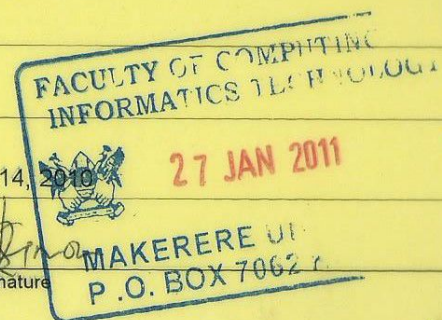 FACULTY OF COMPUTING
INFORMATICS TECHNOLOGY
14, 2010
27 JAN 2011
MAKERERE
nature
P.O. BOX 7062